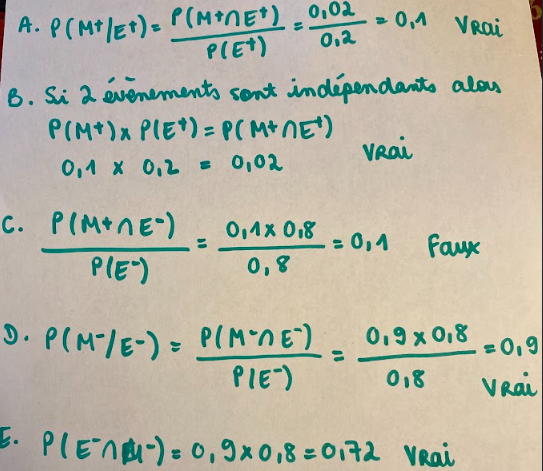 A. P(M+/E+) = P(M+∩E+) / P(E+) = 0,02 / 0,2 = 0,1 Vrai
B. Si 2 évènements sont indépendants alors
P(M+) x P(E+) = P(M+∩E+)
0,1 x 0,2 = 0,02 Vrai
C. P(M+∩E-) / P(E-) = 0,1x0,8 / 0,8 = 0,1 Faux
D. P(M-/E-) = P(M-∩E-) / P(E-) = 0,9x0,8 / 0,8 = 0,9 Vrai
E. P(E-∩M-) = 0,9x0,8 = 0,72 Vrai